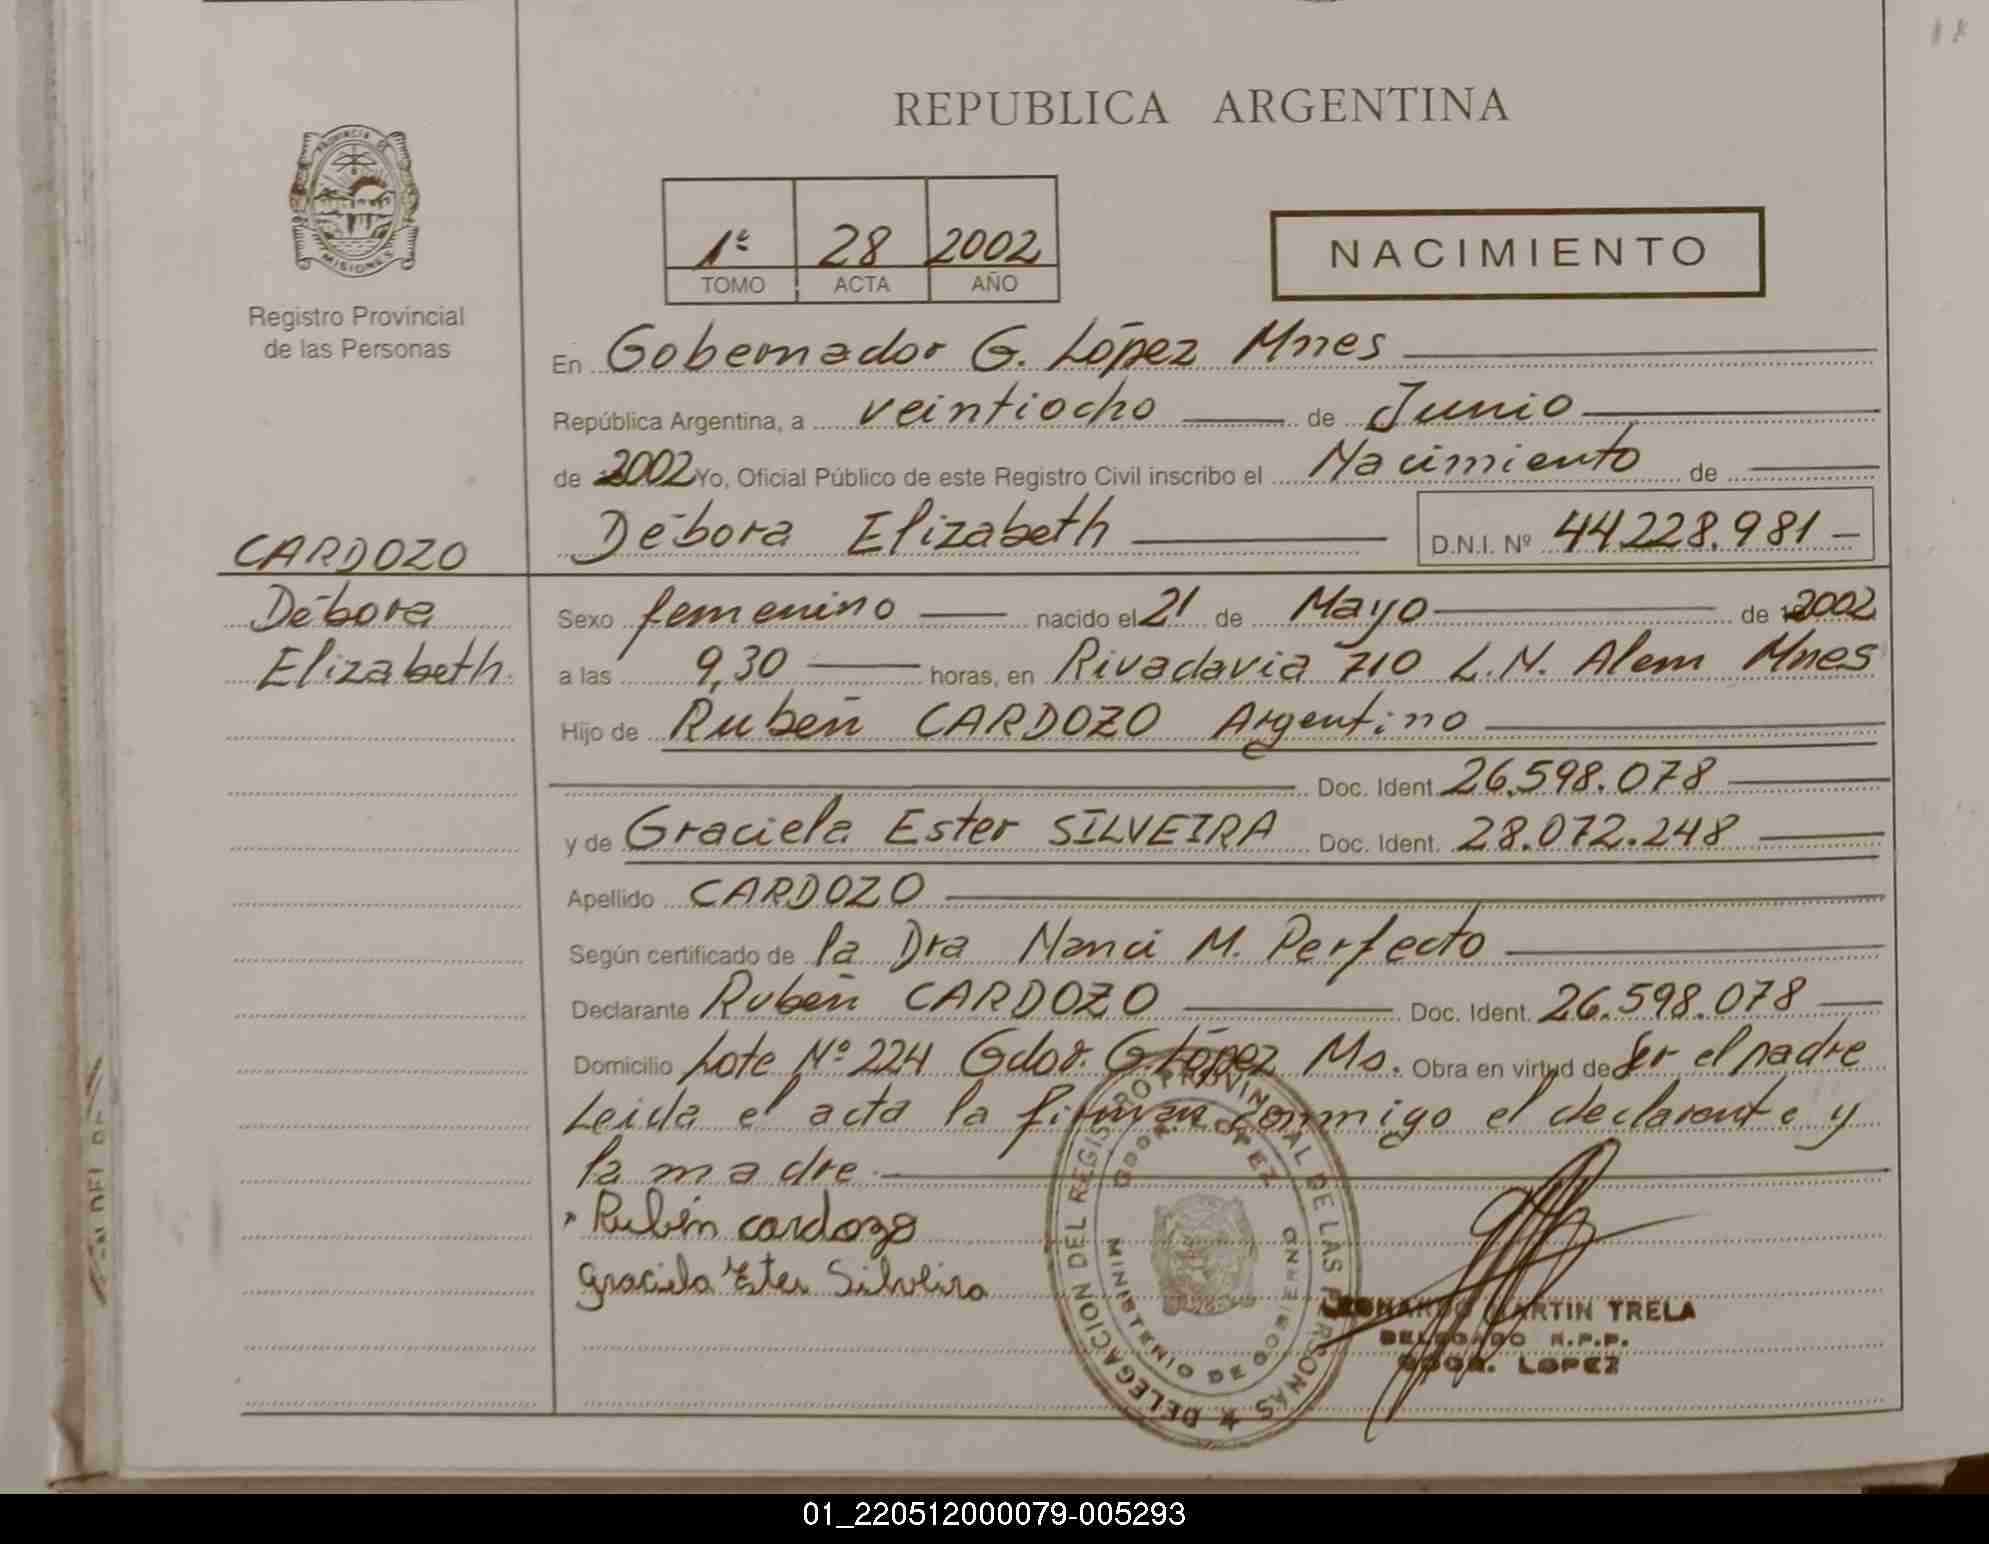 REPUBLICA ARGENTINA
PROVINCIA DE
MISIONES
Registro Provincial
de las Personas
1º 28 2002
TOMO ACTA AÑO
NACIMIENTO
En Gobernador G. López Mnes
República Argentina, a veintiocho de Junio
de 2002 Yo, Oficial Público de este Registro Civil inscribo el Nacimiento de
Débora Elizabeth D.N.I. Nº 44.228.981
CARDOZO
Débora
Elizabeth.
Sexo femenino nacido el 21 de Mayo de 2002
a las 9,30 horas, en Rivadavia 710 L.N. Alem Mnes
Hijo de Rubén CARDOZO Argentino
Doc. Ident. 26.598.078
y de Graciela Ester SILVEIRA Doc. Ident. 28.072.248
Apellido CARDOZO
Según certificado de la Dra Nanci M. Perfecto
Declarante Rubén CARDOZO Doc. Ident. 26.598.078
Domicilio Lote Nº 224 Gdor. G. López Ms. Obra en virtud de Ser el padre
Leida el acta la firman conmigo el declarante y
la madre.
Rubén cardozo
Graciela Ester Silveira
DELEGACION DEL REGISTRO PROVINCIAL DE LAS PERSONAS
GDOR. LOPEZ
MINISTERIO DE GOBIERNO
LEONARDO MARTIN TRELA
DELEGADO R.P.P.
GDOR. LOPEZ
01_220512000079-005293